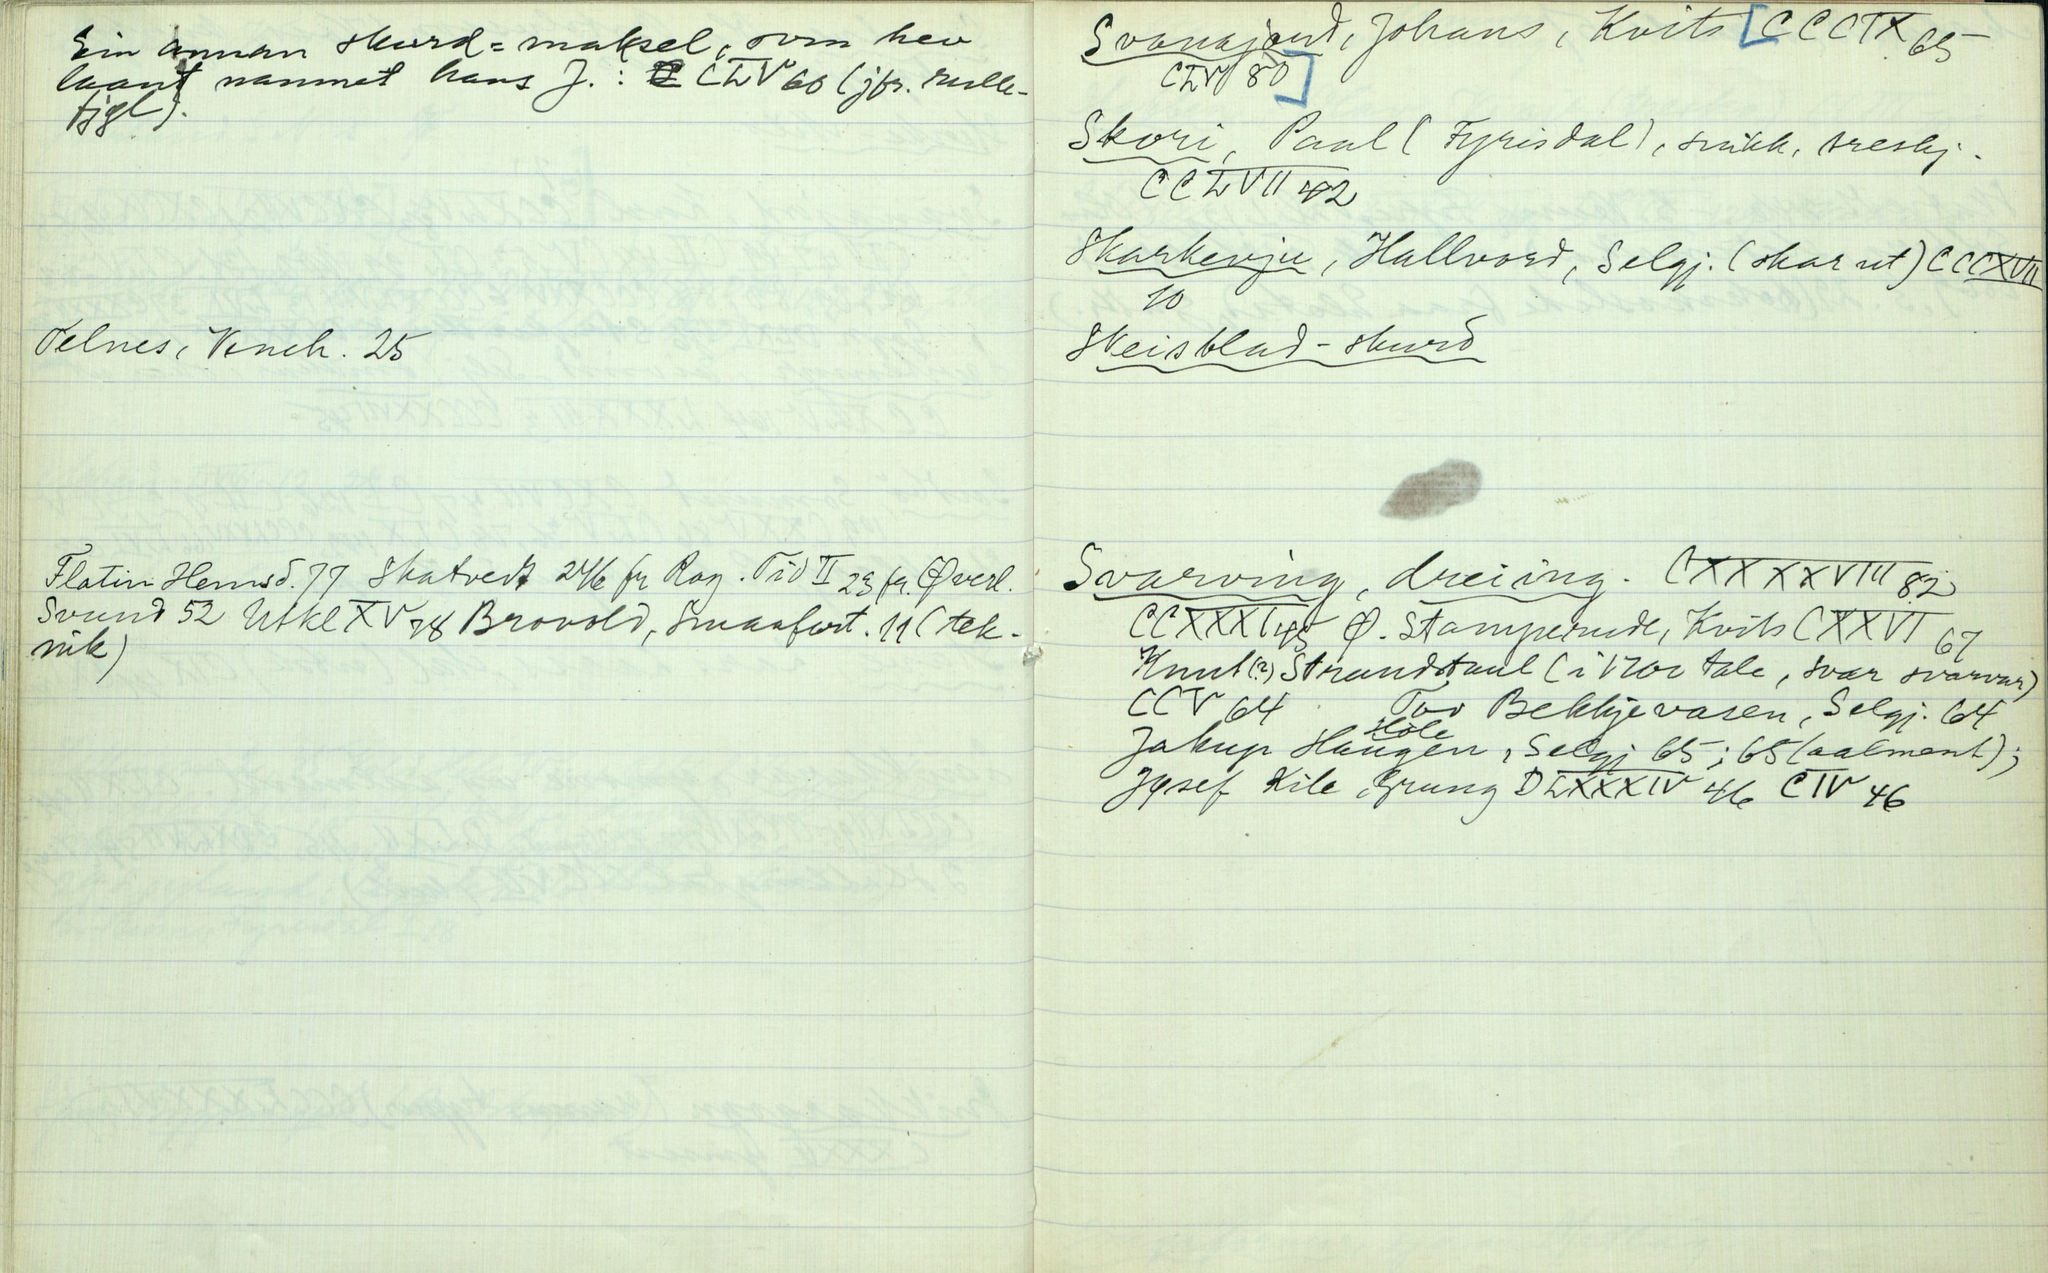 Ein annan skurd=maksel, som hev
laant namnet hans J.: CLV 60 (jfr. rulle-
fjgl).
Telnes, Vench. 25
Flatin Hemsd. 77 Skatvedt 246 fr Rag. Tid II 23 fr. Øverl.
Svund 52 Utkl XV 78 Brovold, Smaafort. 11 (tek-
nik)
Svanajord, Johans, Kvits [CCCIX 65
CLV 80]
Skori, Paal (Fyrisdal), snikk, treskj.
CCLVII 42
Skarkevju, Hallvord, Selgj. (skar ut) CCCXVII
10
Skeisblad-skurd
Svarving, dreiing. CXXXXVIII 82
CCXXXI 45 Ø. Stamperud, Kvits CXXVI 67
Knut (?) Strandstaul (i 1700 tale, svær svarvar)
CCV 64 Tov Bekkjevasen, Selgj. 64
Jakup Haugen, Selgj 65; 65 (aalment);
Jøsef Kile, Grung DLXXXIV 46 CIV 46